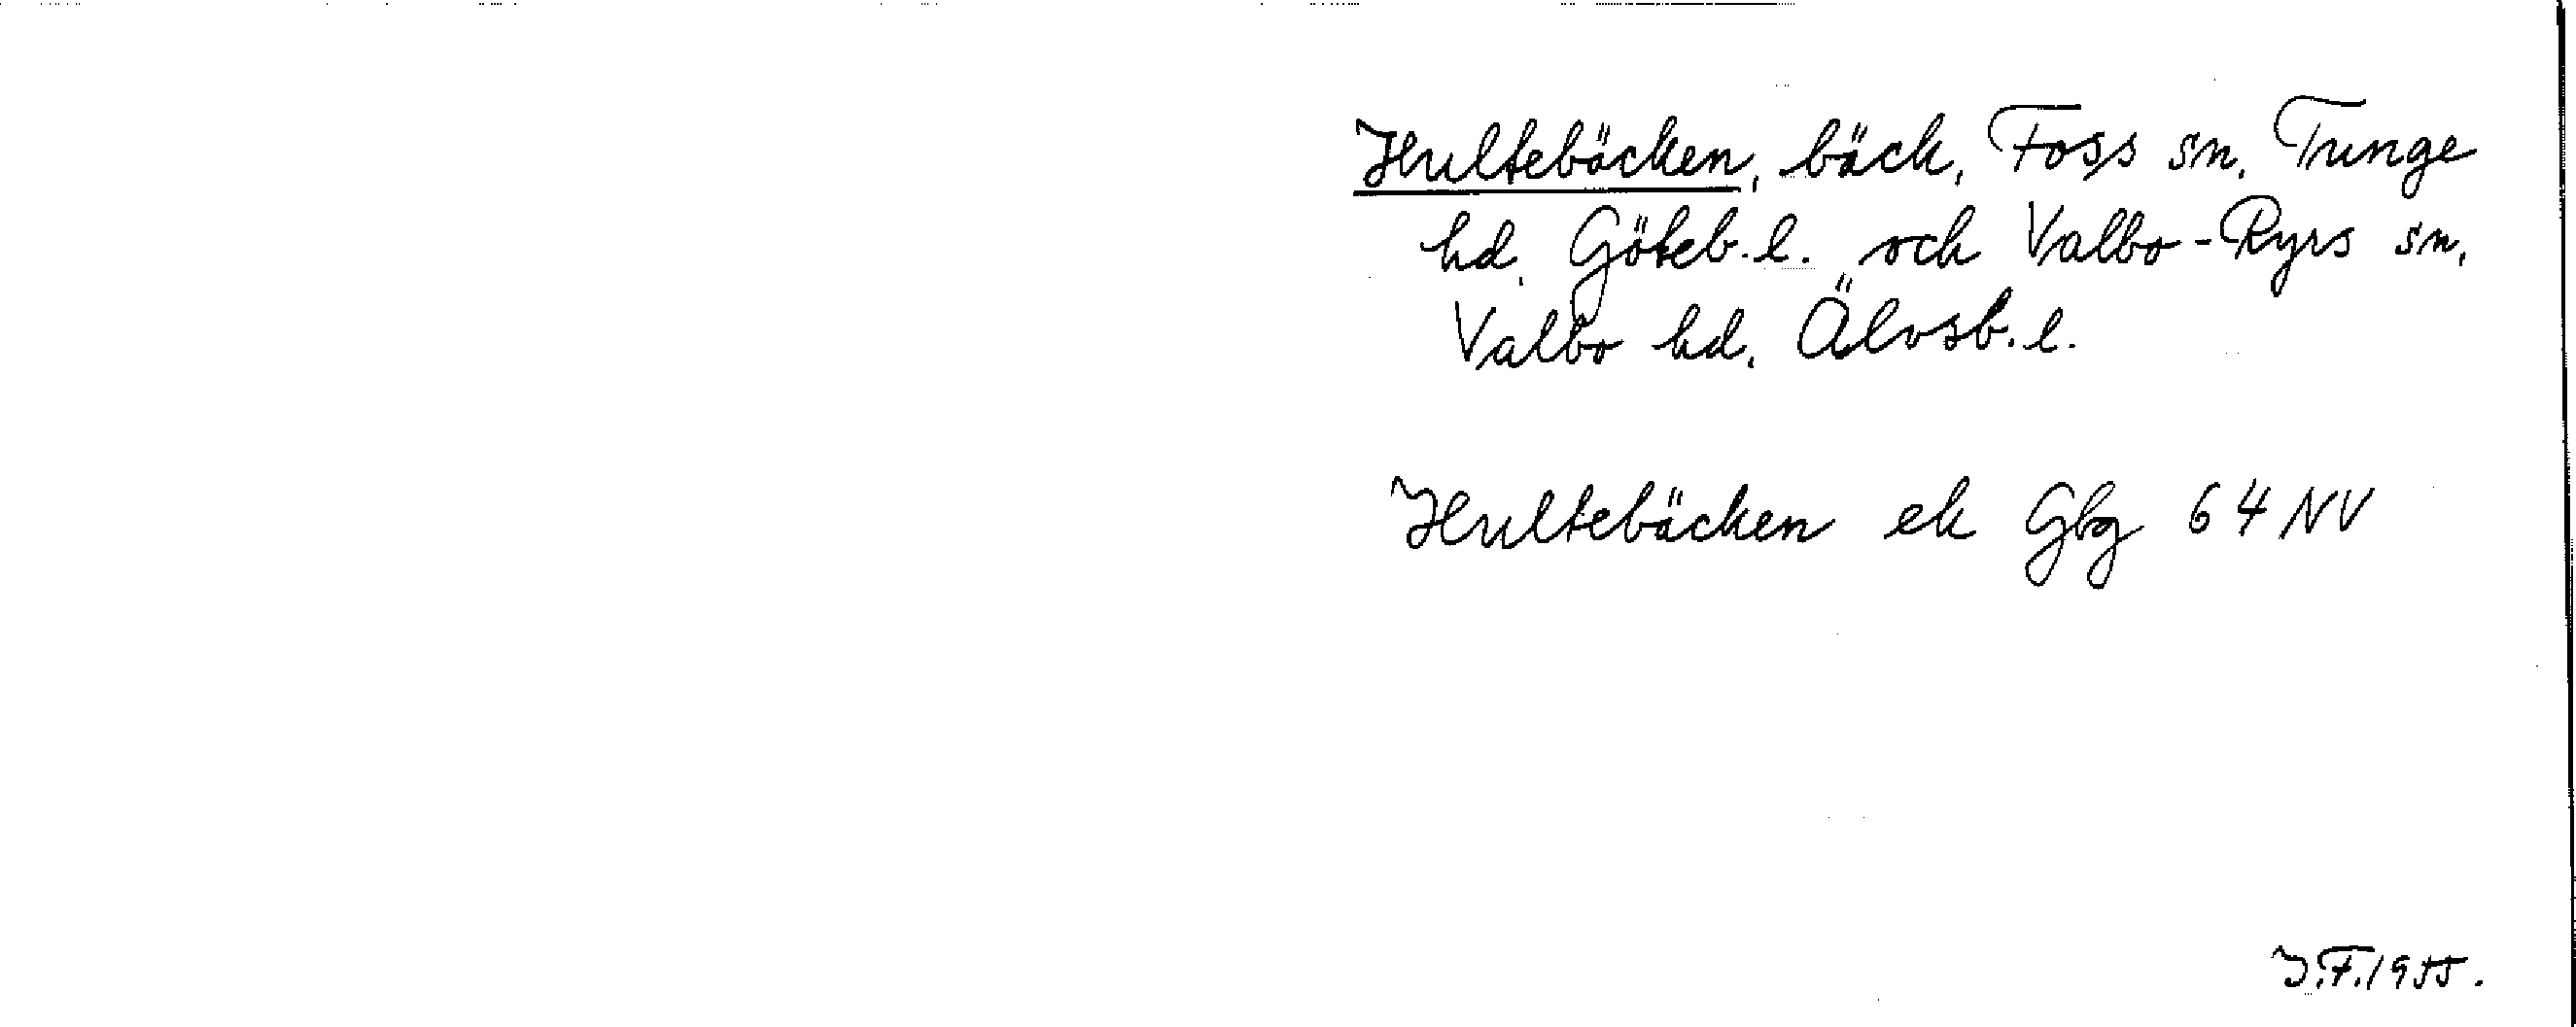 Hultebäcken, bäck, Foss sn, Tunge
hd, Göteb. l. och Valbo-Ryrs sn,
Valbo hd, Älvsb. l.
Hultebäcken ek Gbg 64 NV
J.F. 1955.